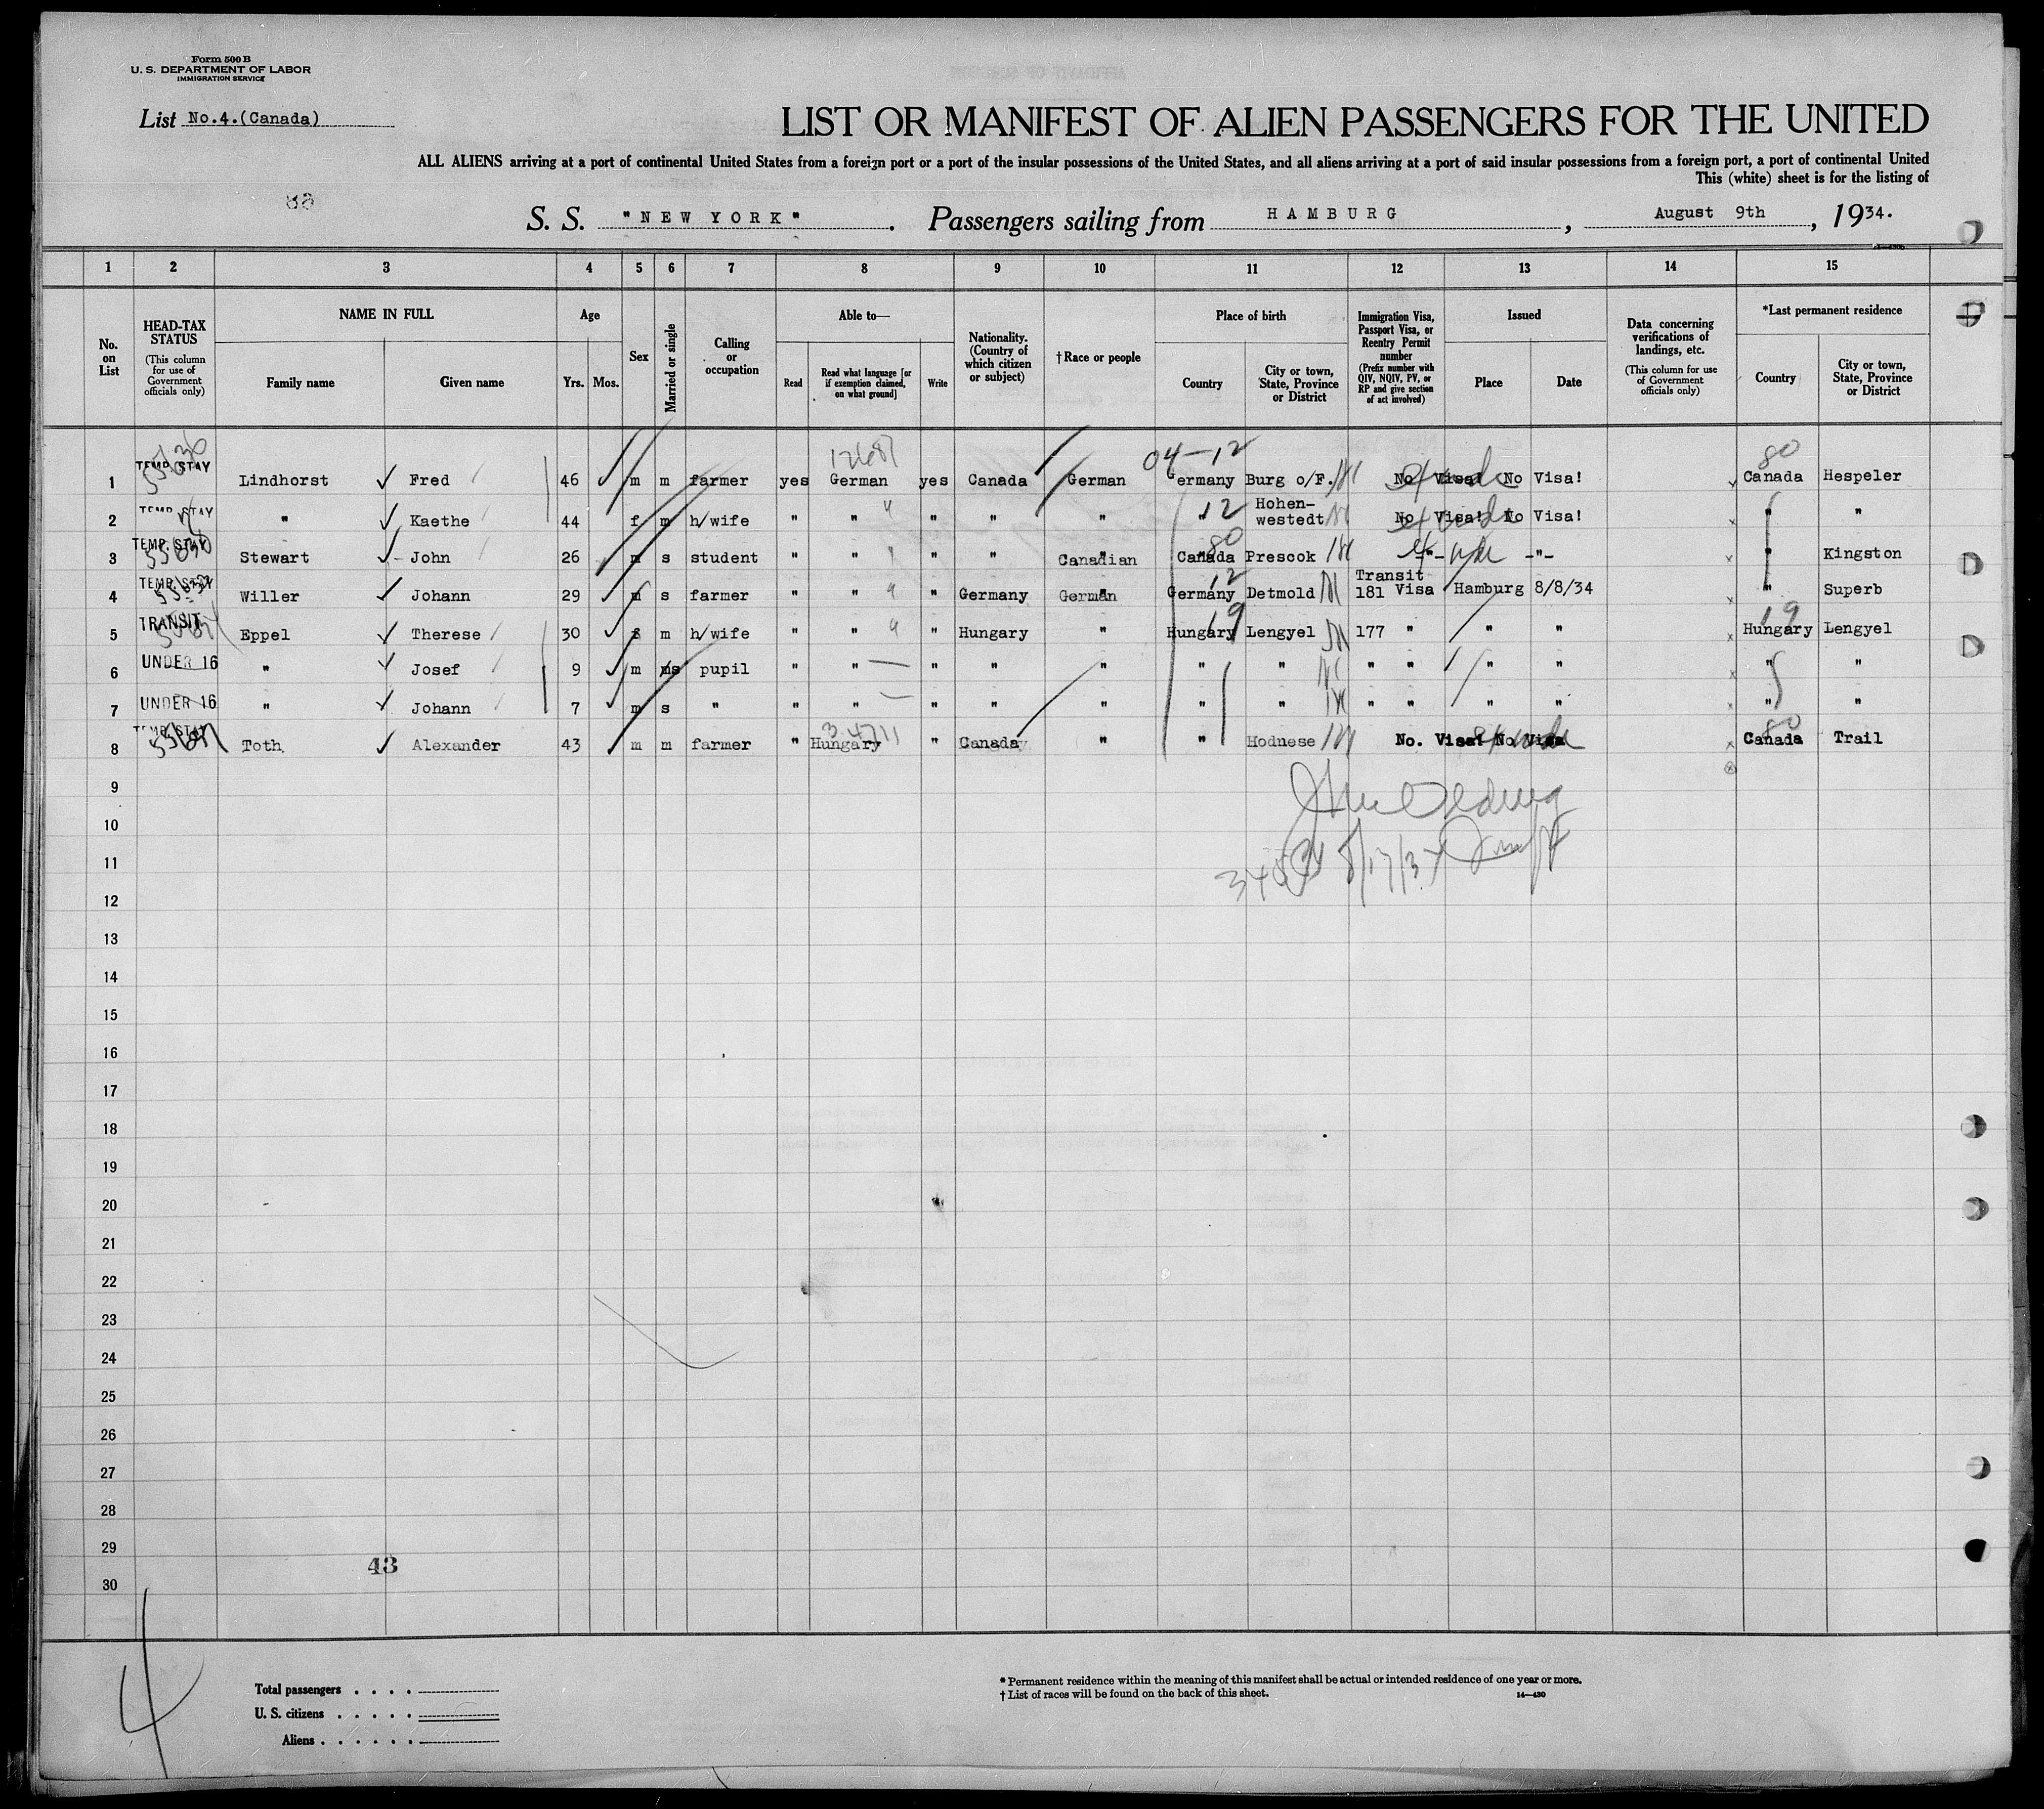 Form 500 B
U. S. DEPARTMENT OF LABOR
IMMIGRATION SERVICE
List No.4.(Canada)
LIST OR MANIFEST OF ALIEN PASSENGERS FOR THE UNITED
ALL ALIENS arriving at a port of continental United States from a foreign port or a port of the insular possessions of the United States, and all aliens arriving at a port of said insular possessions from a foreign port, a port of continental United
This (white) sheet is for the listing of
S. S. "NEW YORK". Passengers sailing from HAMBURG, August 9th, 1934.
1 2 3 4 5 6 7 8 9 10 11 12 13 14 15
No. on List
HEAD-TAX STATUS (This column for use of Government officials only)
NAME IN FULL Family name Given name
Age Yrs. Mos.
Sex
Married or single
Calling or occupation
Able to— Read Read what language [or if exemption claimed, on what ground] Write
Nationality. (Country of which citizen or subject)
†Race or people
Place of birth Country City or town, State, Province or District
Immigration Visa, Passport Visa, or Reentry Permit number (Prefix number with QIV, NQIV, PV, or RP and give section of act involved)
Issued Place Date
Data concerning verifications of landings, etc. (This column for use of Government officials only)
*Last permanent residence Country City or town, State, Province or District
04-12 80
1 TEMP. STAY Lindhorst Fred 46 m m farmer yes German yes Canada German Germany Burg o/F. No Visa! No Visa! Canada Hespeler
2 TEMP. STAY " Kaethe 44 f m h/wife " " " " " " 12 Hohen-westedt No Visa! No Visa! " "
3 TEMP. STAY Stewart John 26 m s student " " " " Canadian Canada 80 Prescok -"- -"- " Kingston
4 TEMP. STAY Willer Johann 29 m s farmer " " " Germany German Germany 12 Detmold Transit 181 Visa Hamburg 8/8/34 " Superb
5 TRANSIT Eppel Therese 30 f m h/wife " " " Hungary " Hungary 19 Lengyel 177 " " " Hungary 19 Lengyel
6 UNDER 16 " Josef 9 m s pupil " " " " " " " " " " " " "
7 UNDER 16 " Johann 7 m s " " " " " " " " " " " " " "
8 TEMP. STAY Toth Alexander 43 m m farmer " Hungary " Canada " " Hodnese No. Visa! No Visa Canada 80 Trail
9
10
11 8/17/34
12
13
14
15
16
17
18
19
20
21
22
23
24
25
26
27
28
29
43
30
4
Total passengers . . . .
U. S. citizens . . . . .
Aliens . . . . . .
* Permanent residence within the meaning of this manifest shall be actual or intended residence of one year or more.
† List of races will be found on the back of this sheet. 14—430